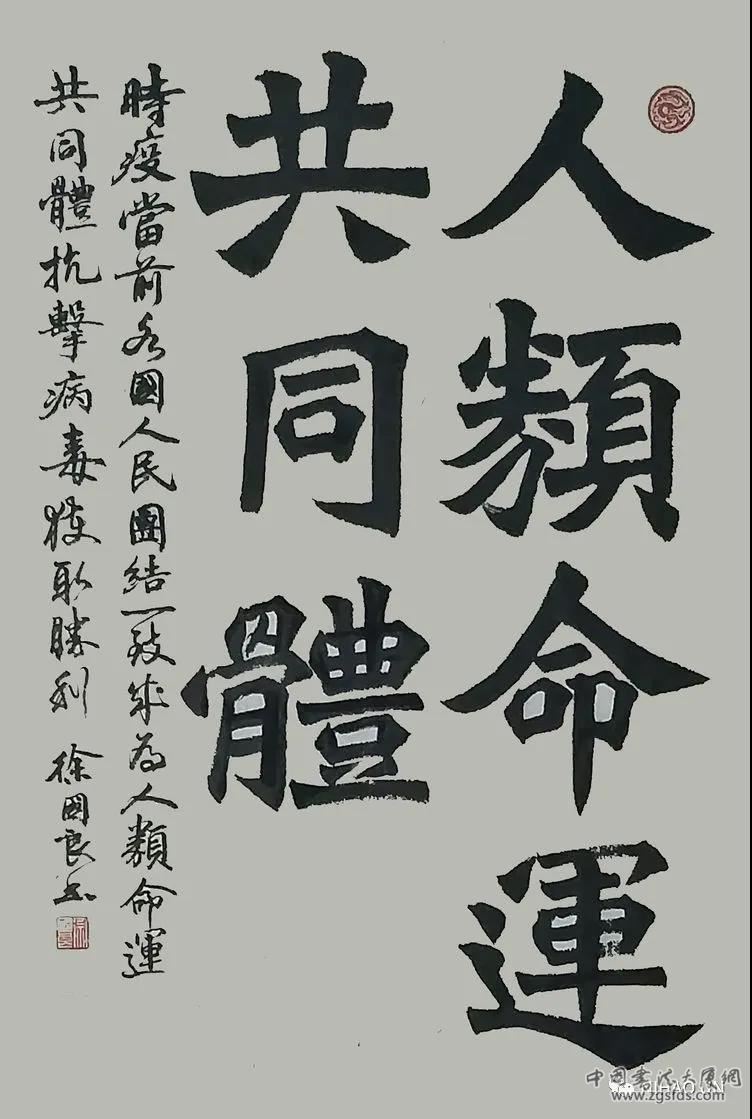 人類命運
共同體
時疫當前各國人民團結一致成為人類命運
共同體抗擊病毒獲取勝利 徐國良书
中国书法大厦網
www.zgsfds.com